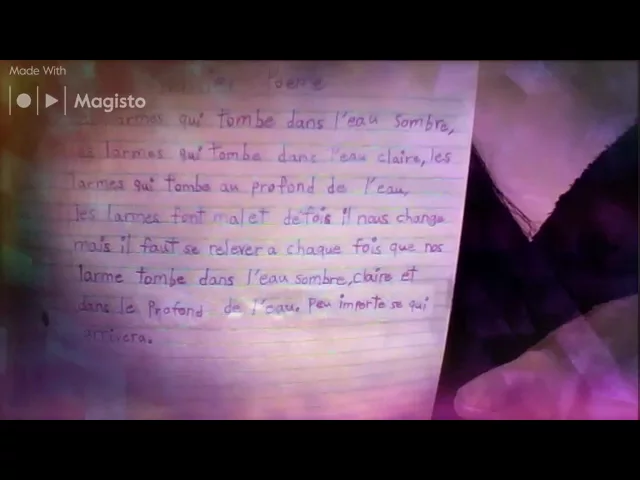 Made With
Magisto
Poeme
larmes qui tombe dans l'eau sombre,
les larmes qui tombe dans l'eau claire, les
larmes qui tombe au profond de l'eau,
les larmes font mal et defois il nous change
mais il faut se relever a chaque fois que nos
larme tombe dans l'eau sombre, claire et
dans le profond de l'eau. Peu importe se qui
arrivera.